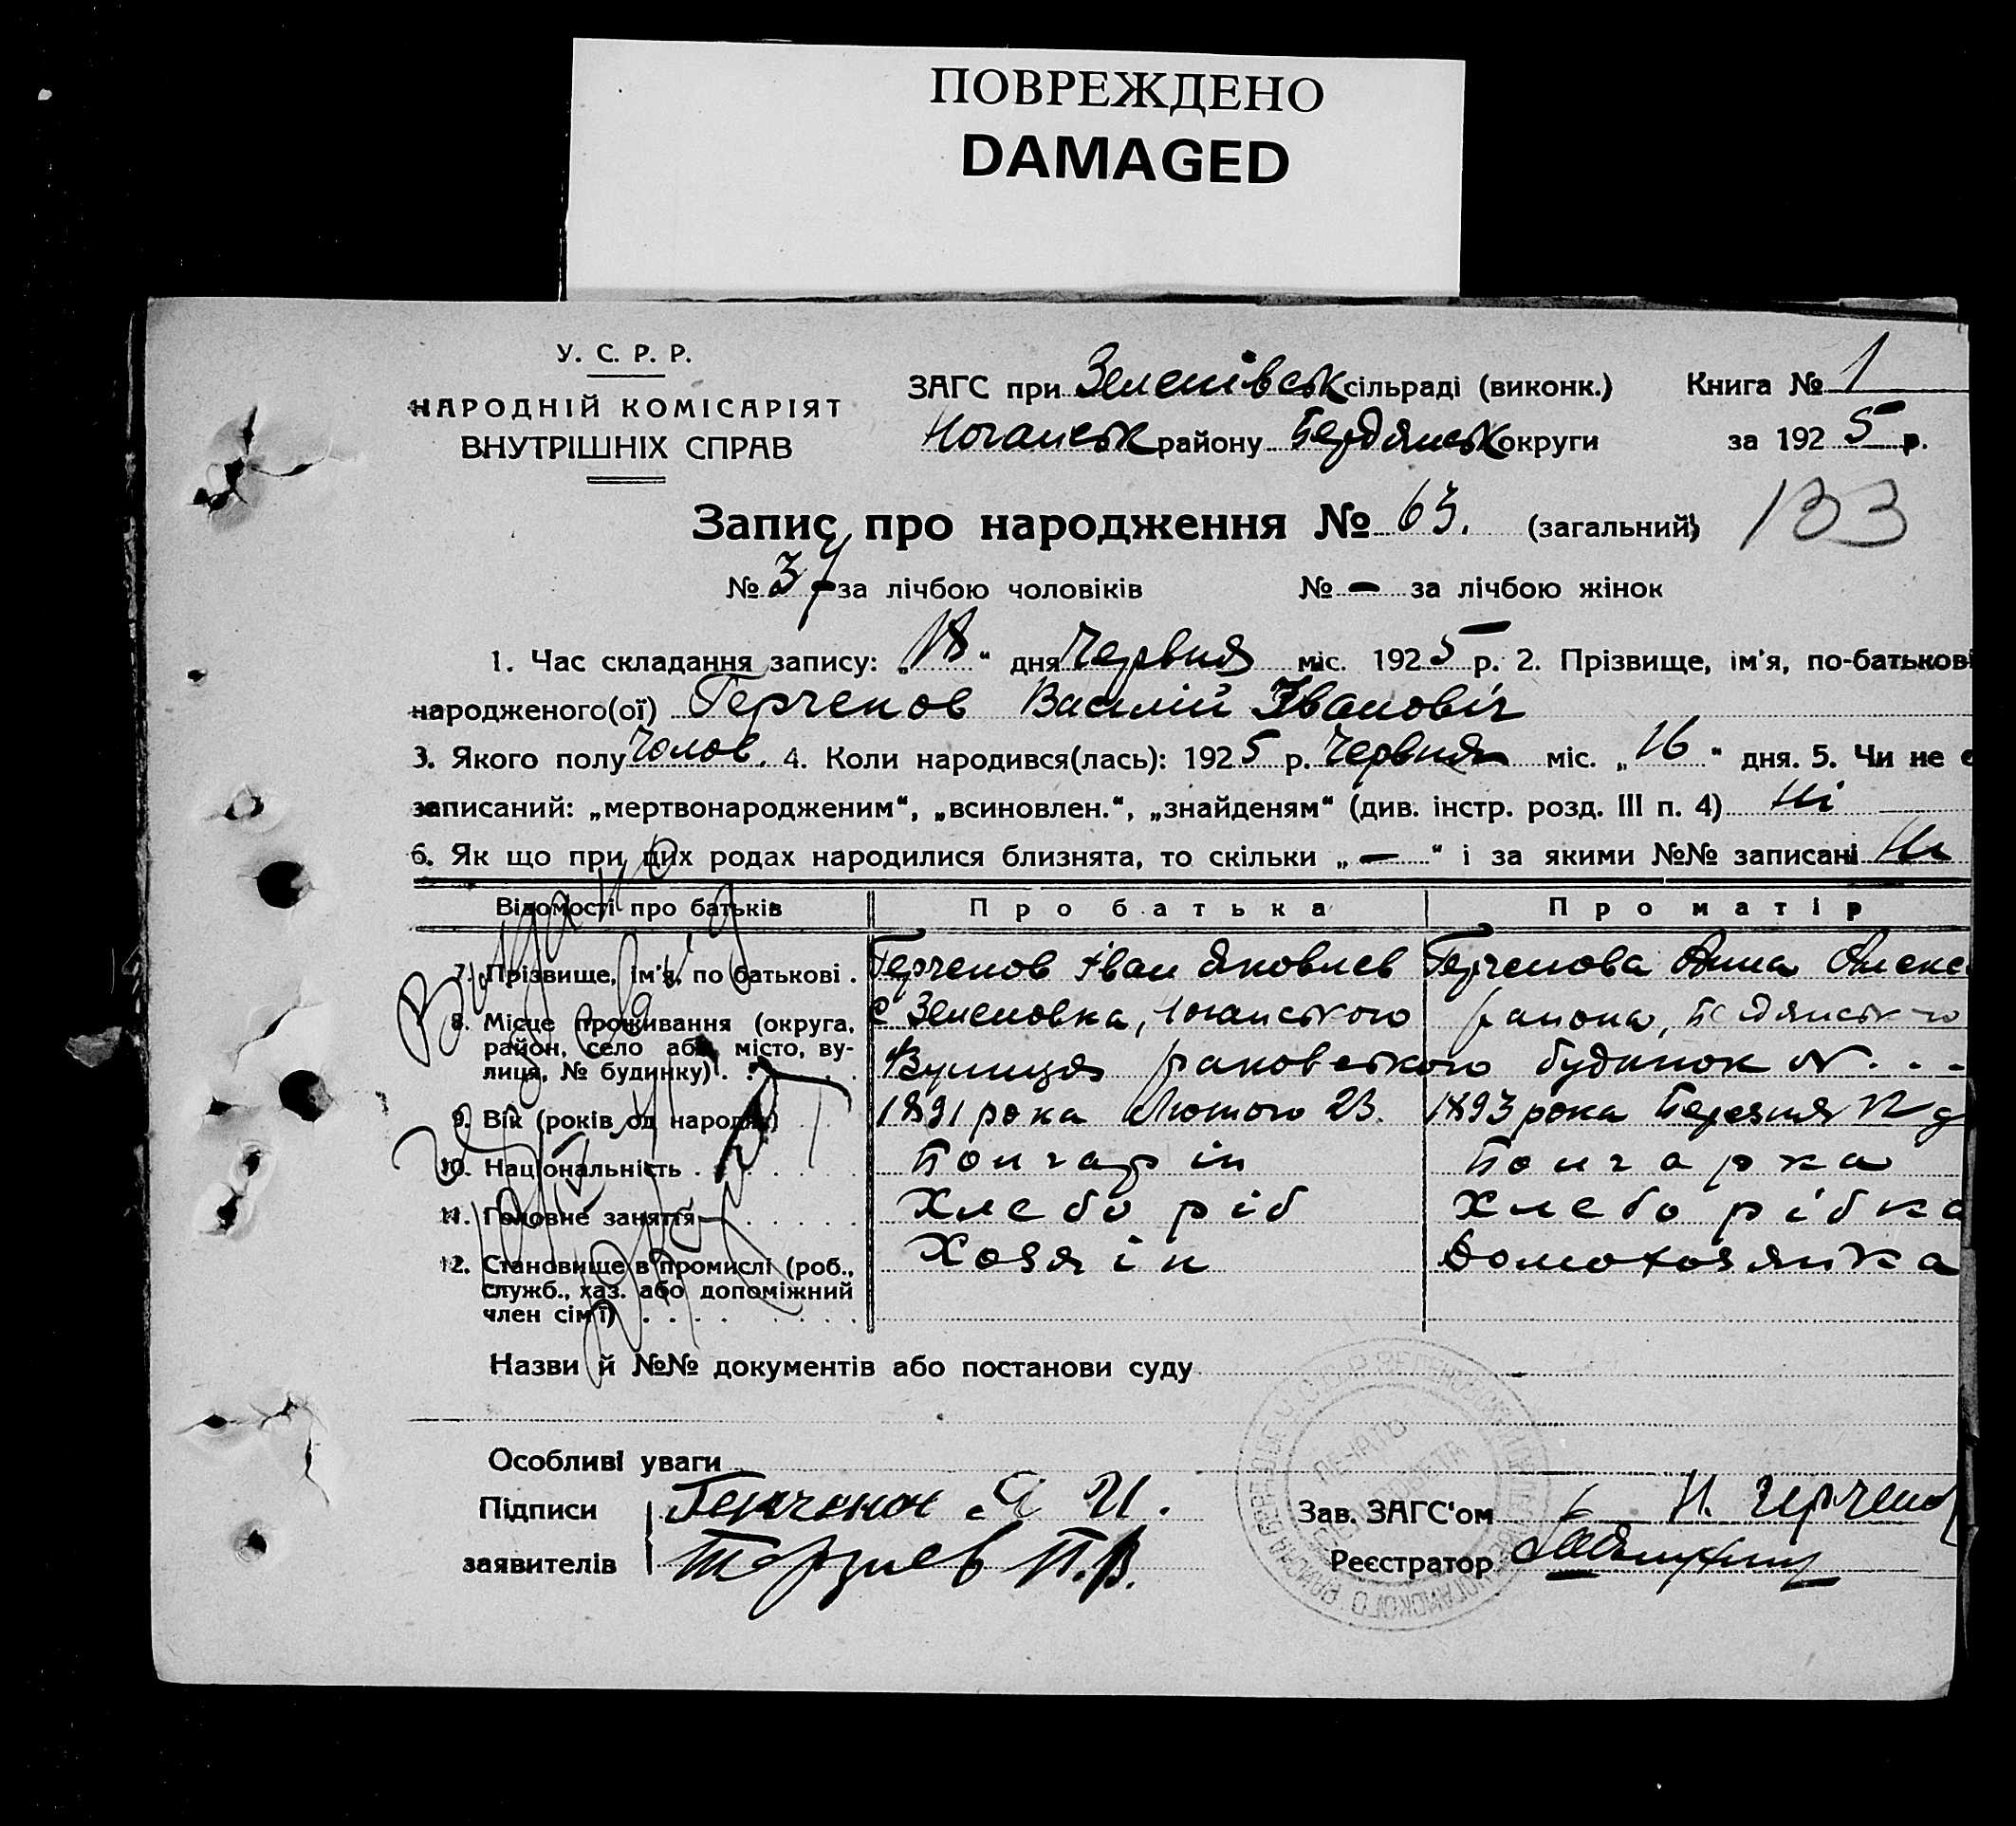 ПОВРЕЖДЕНО
DAMAGED
У. С. Р. Р.
НАРОДНІЙ КОМІСАРІЯТ
ВНУТРІШНІХ СПРАВ
ЗАГС при Зеленівськ сільраді (виконк.) Книга № 1
Ногайськ району Бердянськ округи за 1925 р.
Запис про народження № 63. (загальний) 133
№ 37 за лічбою чоловіків № — за лічбою жінок
1. Час складання запису: „18“ дня Червня міс. 1925 р. 2. Прізвище, ім'я, по-батькові
народженого(ої) Герченов Василій Іванович
3. Якого полу Чолов. 4. Коли народився(лась): 1925 р. Червня міс. „16“ дня. 5. Чи не є
записаний: „мертвонародженим“, „всиновлен.“, „знайденям“ (див. інстр. розд. III п. 4) Ні
6. Як що при цих родах народилися близнята, то скільки „—“ і за якими №№ записані Ні
Відомості про батьків Про батька Про матір
7. Прізвище, ім'я, по батькові . Герченов Іван Яковлев Герченова Анна Алекс
8. Місце проживання (округа, с Зеленовка, Ногайського района, Бердянського
район, село або місто, ву-
лиця, № будинку) . . Вулиця Раковського будинок N . . -
9. Вік (років од народж) 1891 рока Лютого 23. 1893 рока Березня 12 д
10. Національність . Болгарін Болгарка
11. Головне заняття Хлеборіб Хлеборібка
12. Становище в промислі (роб., Хозяін Домохозяйка
служб., хаз. або допоміжний
член сім'ї)
Назви й №№ документів або постанови суду
Особливі уваги
Підписи Герченов Я И. Зав. ЗАГС'ом И. Герченов
заявителів Терзиев П.В. Реєстратор
ПЕЧАТЬ